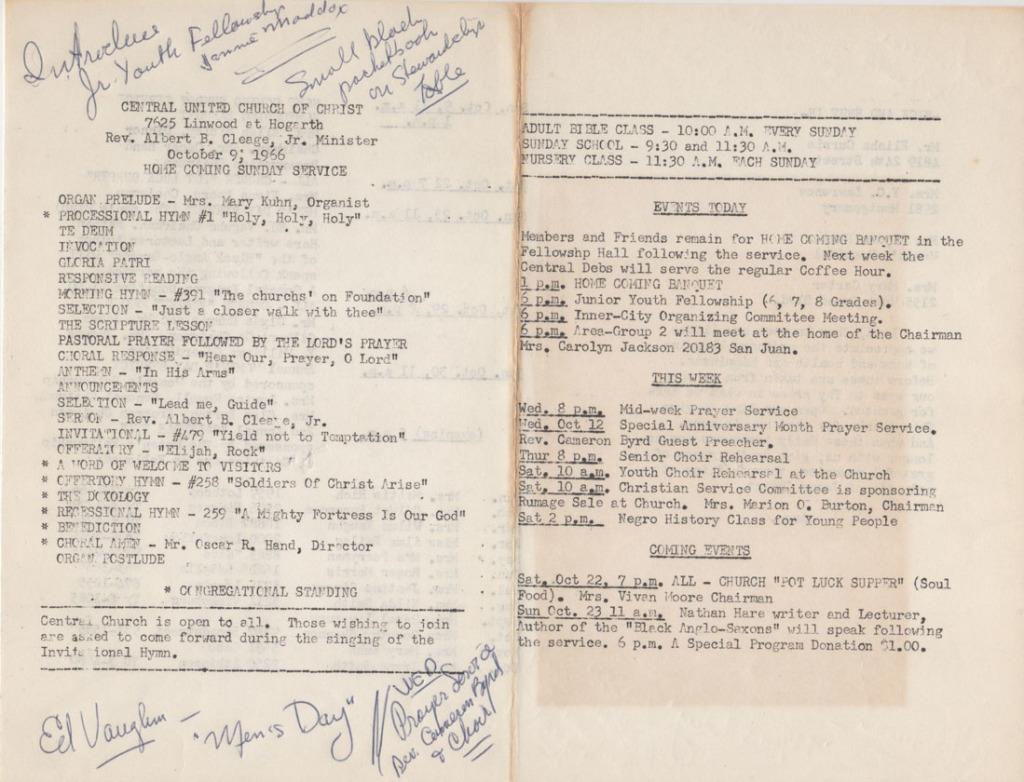 Introduce
Jr. Youth Fellowship
Jannie Maddox
Small black
pocketbook
on Stewardship
Table
CENTRAL UNITED CHURCH OF CHRIST
7625 Linwood at Hogarth
Rev. Albert B. Cleage, Jr. Minister
October 9, 1966
HOME COMING SUNDAY SERVICE
ORGAN PRELUDE - Mrs. Mary Kuhn, Organist
* PROCESSIONAL HYMN #1 "Holy, Holy, Holy"
TE DEUM
INVOCATION
GLORIA PATRI
RESPONSIVE READING
MORNING HYMN - #391 "The churchs' on Foundation"
SELECTION - "Just a closer walk with thee"
THE SCRIPTURE LESSON
PASTORAL PRAYER FOLLOWED BY THE LORD'S PRAYER
CHORAL RESPONSE - "Hear Our, Prayer, O Lord"
ANTHEMN - "In His Arms"
ANNOUNCEMENTS
SELECTION - "Lead me, Guide"
SERMON - Rev. Albert B. Cleage, Jr.
INVITATIONAL - #479 "Yield not to Temptation"
OFFERATORY - "Elijah, Rock"
* A WORD OF WELCOME TO VISITORS
* OFFERTORY HYMN - #258 "Soldiers Of Christ Arise"
* THE DOXOLOGY
* RECESSIONAL HYMN - 259 "A Mighty Fortress Is Our God"
* BENEDICTION
* CHORAL AMEN - Mr. Oscar R. Hand, Director
ORGAN POSTLUDE
* CONGREGATIONAL STANDING
Central Church is open to all. Those wishing to join
are asked to come forward during the singing of the
Invitational Hymn.
Ed Vaughn -
"Men's Day"
WED
Prayer Service
Rev. Cameron Byrd
& Choir
ADULT BIBLE CLASS - 10:00 A.M. EVERY SUNDAY
SUNDAY SCHOOL - 9:30 and 11:30 A.M.
NURSERY CLASS - 11:30 A.M. EACH SUNDAY
EVENTS TODAY
Members and Friends remain for HOME COMING BANQUET in the
Fellowshp Hall following the service. Next week the
Central Debs will serve the regular Coffee Hour.
1 p.m. HOME COMING BANQUET
5 p.m. Junior Youth Fellowship (6, 7, 8 Grades).
6 p.m. Inner-City Organizing Committee Meeting.
6 p.m. Area-Group 2 will meet at the home of the Chairman
Mrs. Carolyn Jackson 20183 San Juan.
THIS WEEK
Wed. 8 p.m. Mid-week Prayer Service
Wed. Oct 12 Special Anniversary Month Prayer Service.
Rev. Cameron Byrd Guest Preacher.
Thur 8 p.m. Senior Choir Rehearsal
Sat. 10 a.m. Youth Choir Rehearsal at the Church
Sat. 10 a.m. Christian Service Committee is sponsoring
Rumage Sale at Church. Mrs. Marion O. Burton, Chairman
Sat 2 p.m. Negro History Class for Young People
COMING EVENTS
Sat. Oct 22, 7 p.m. ALL - CHURCH "POT LUCK SUPPER" (Soul
Food). Mrs. Vivan Moore Chairman
Sun Oct. 23 11 a.m. Nathan Hare writer and Lecturer,
Author of the "Black Anglo-Saxons" will speak following
the service. 6 p.m. A Special Program Donation $1.00.